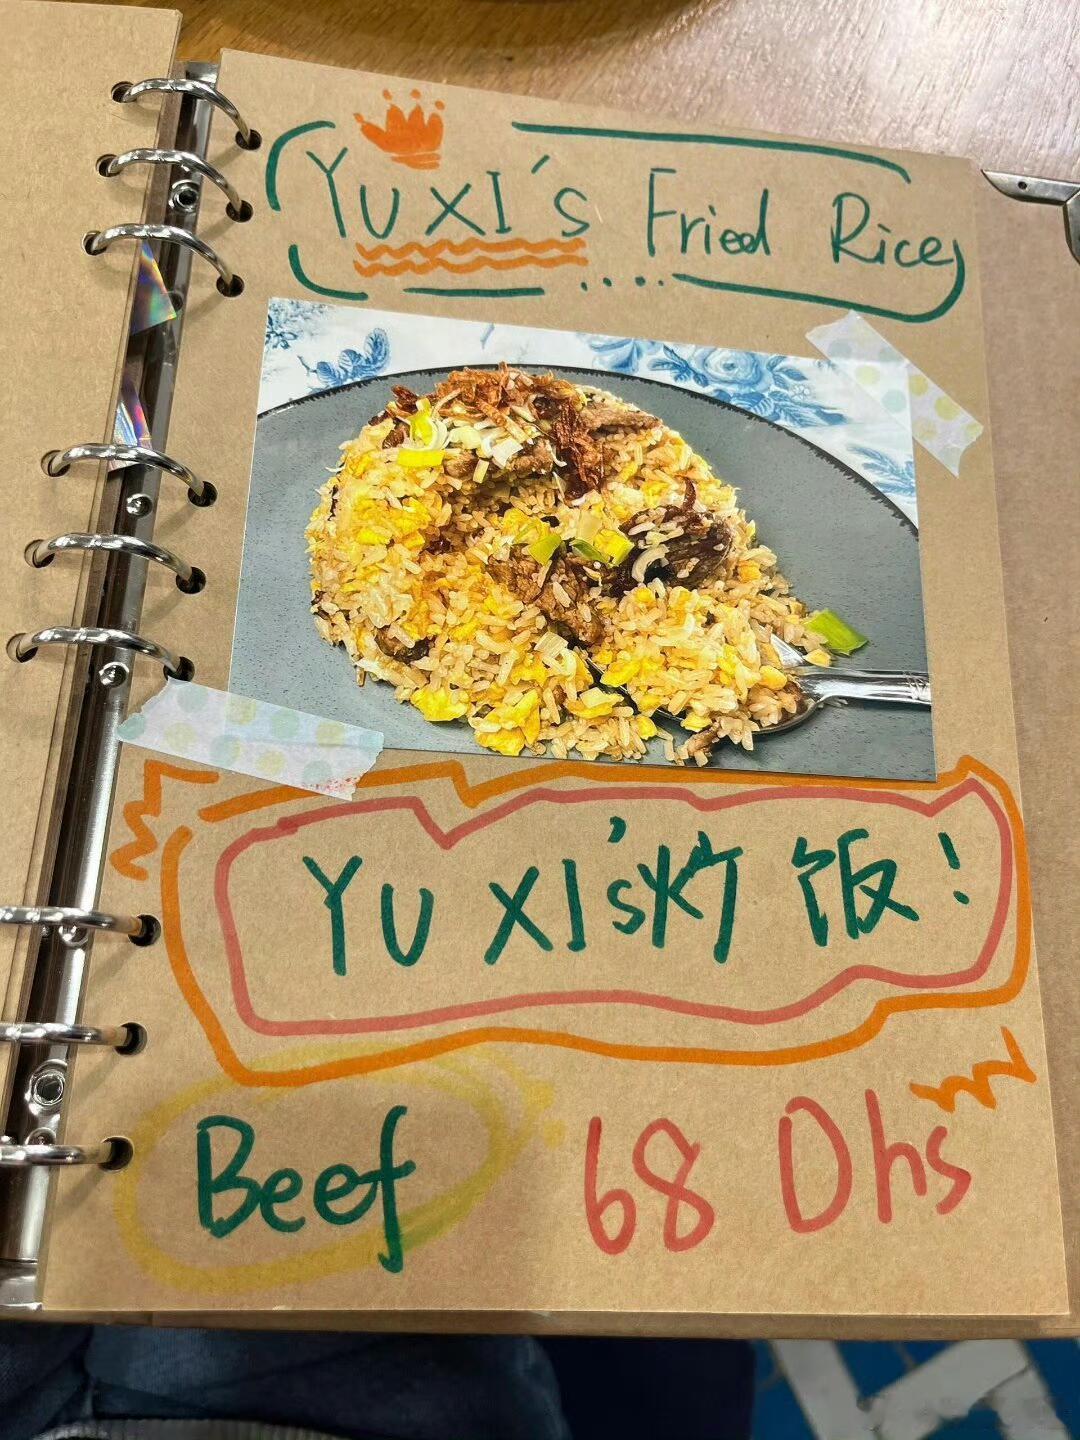 YUXI's Fried Rice
YU XI's炒饭!
Beef 68 Dhs